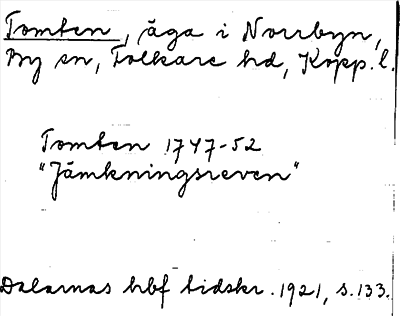 Tomten, äga i Norrbyn,
By sn, Folkare hd, Kopp. l.
Tomten 1747-52
"Jämkningsreven"
Dalarnas hbf tidskr. 1921, s. 133.